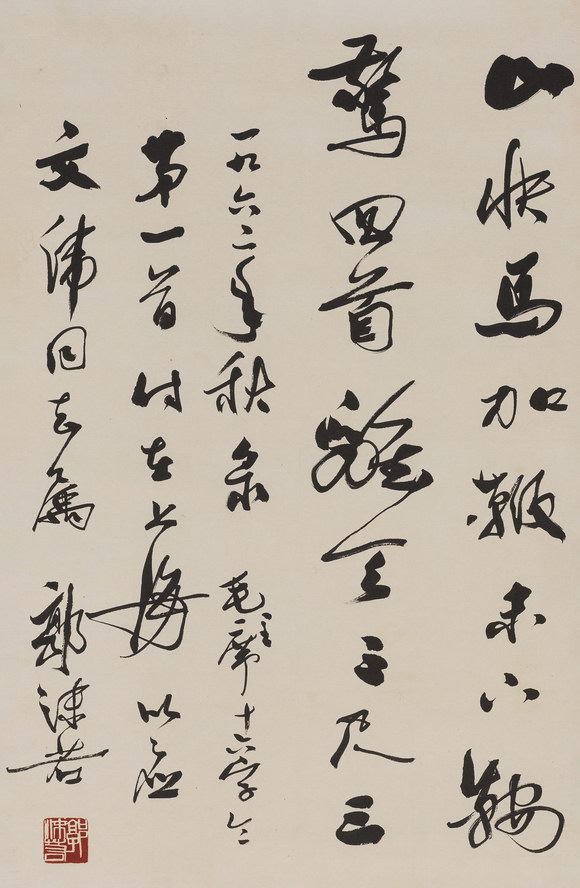 山快馬加鞭未下鞍
驚回首離天三尺三
一九六二年秋录 毛主席十六字令
第一首时在上海 以應
文偉同志屬 郭沫若
郭沫若